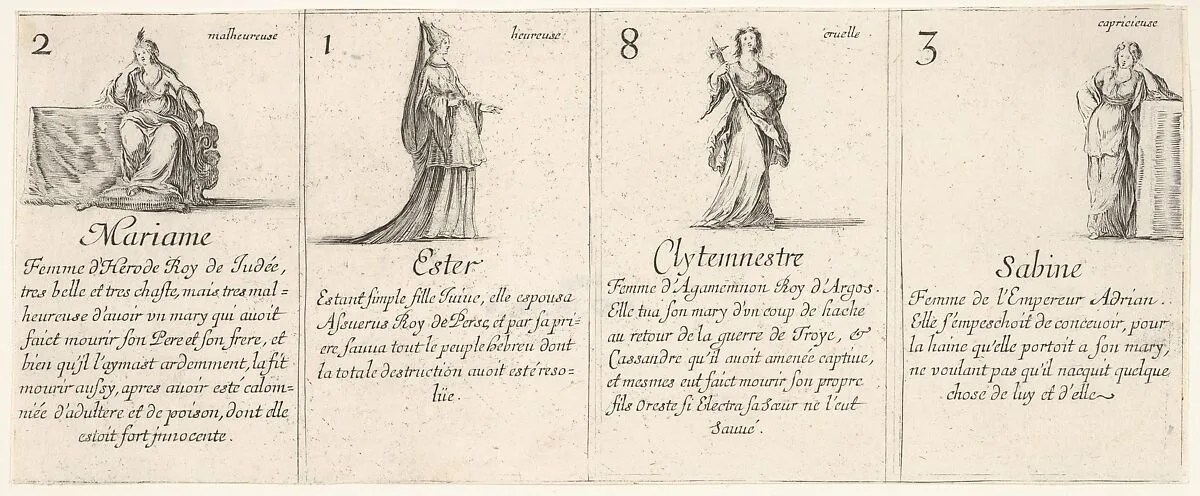 2
malheureuse
Mariame
Femme d'Herode Roy de Iudée,
tres belle et tres chaste, mais tres mal=
heureuse d'auoir vn mary qui auoit
faict mourir son Pere et son frere, et
bien qu'jl l'aymast ardemment, la fit
mourir aussy, apres auoir esté calom=
niée d'adultere et de poison, dont elle
estoit fort jnnocente.
1
heureuse
Ester
Estant simple fille Iuiue, elle espousa
Assuerus Roy de Perse, et par sa pri=
ere sauua tout le peuple hebreu dont
la totale destruction auoit esté reso=
lüe.
8
cruelle
Clytemnestre
Femme d'Agamemnon Roy d'Argos.
Elle tua son mary d'vn coup de hache
au retour de la guerre de Troye, &
Cassandre qu'il auoit amenée captiue,
et mesmes eut faict mourir son propre
fils Oreste si Electra sa Sœur ne l'eut
sauué.
3
capricieuse
Sabine
Femme de l'Empereur Adrian.
Elle s'empeschoit de conceuoir, pour
la haine qu'elle portoit a son mary,
ne voulant pas qu'il nacquit quelque
chose de luy et d'elle